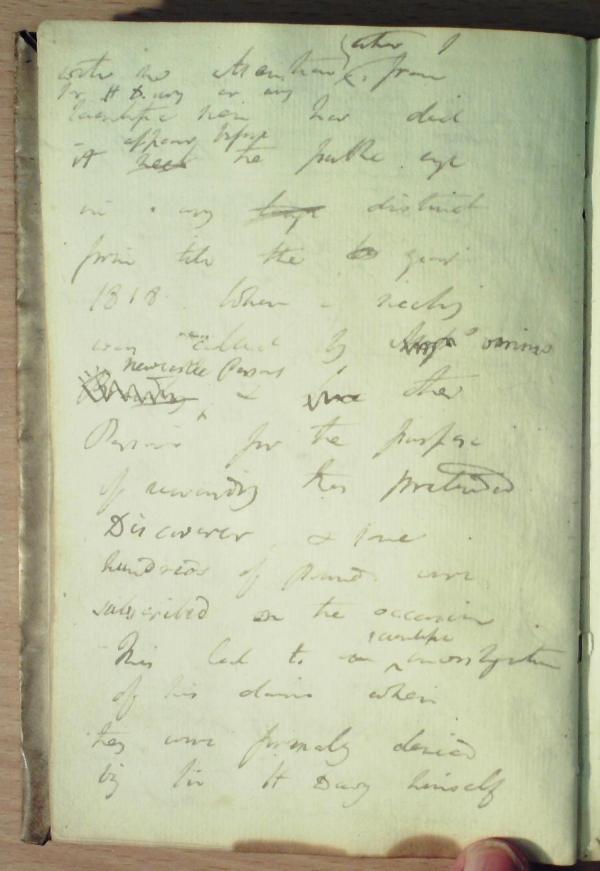 either
with no attention from
Sir H Davy or any
Scientific men nor did
appear before
it the public eye
in any distinct
form till the year
1818 When a meeting
was called by various
Newcastle Persons
& other
Persons for the purpose
of rewarding this pretended
Discoverer & some
hundreds of Pounds were
subscribed on the occasion
scientific
This led to an investigation
of his claims when
they were formaly denied
by Sir H Davy himself